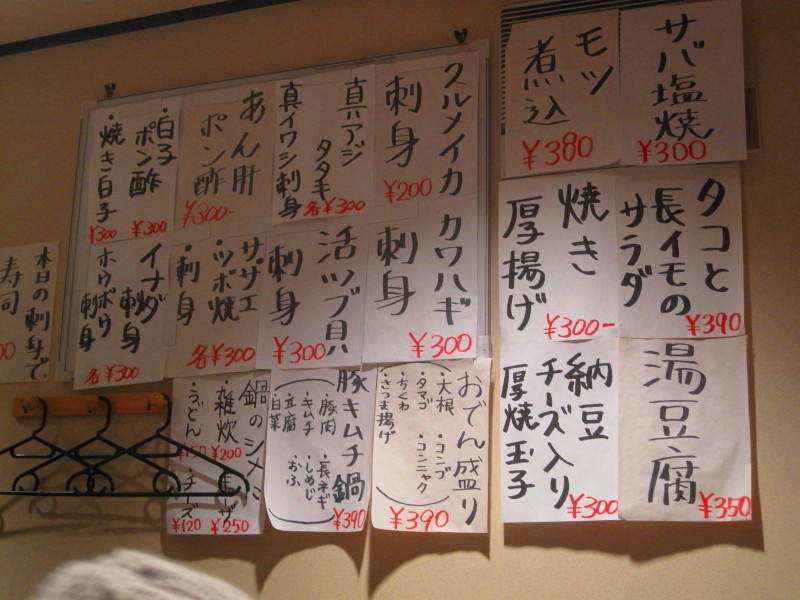 サバ塩焼
¥300
モツ
煮込
¥380
スルメイカ
刺身
¥200
真アジ
タタキ
真イワシ刺身
各¥300
あん肝
ポン酢
¥300-
・白子
ポン酢
¥300
・焼き白子
¥300
タコと
長イモの
サラダ
¥390
焼き
厚揚げ
¥300-
カワハギ
刺身
¥300
活ツブ貝
刺身
¥300
サザエ
・ツボ焼
・刺身
各¥300
イナダ
刺身
ホウボウ
刺身
各¥300
本日の刺身で
寿司
湯豆腐
¥350
納豆
チーズ入り
厚焼玉子
¥300
おでん盛り
・大根
・タマゴ
・ちくわ
・さつま揚げ
・コンブ
・コンニャク
¥390
豚キムチ鍋
・豚肉
・キムチ
・豆腐
・白菜
・長ネギ
・しめじ
・おふ
¥390
鍋のシメに
・雑炊
¥200
・うどん
¥150
¥250
・チーズ
¥120